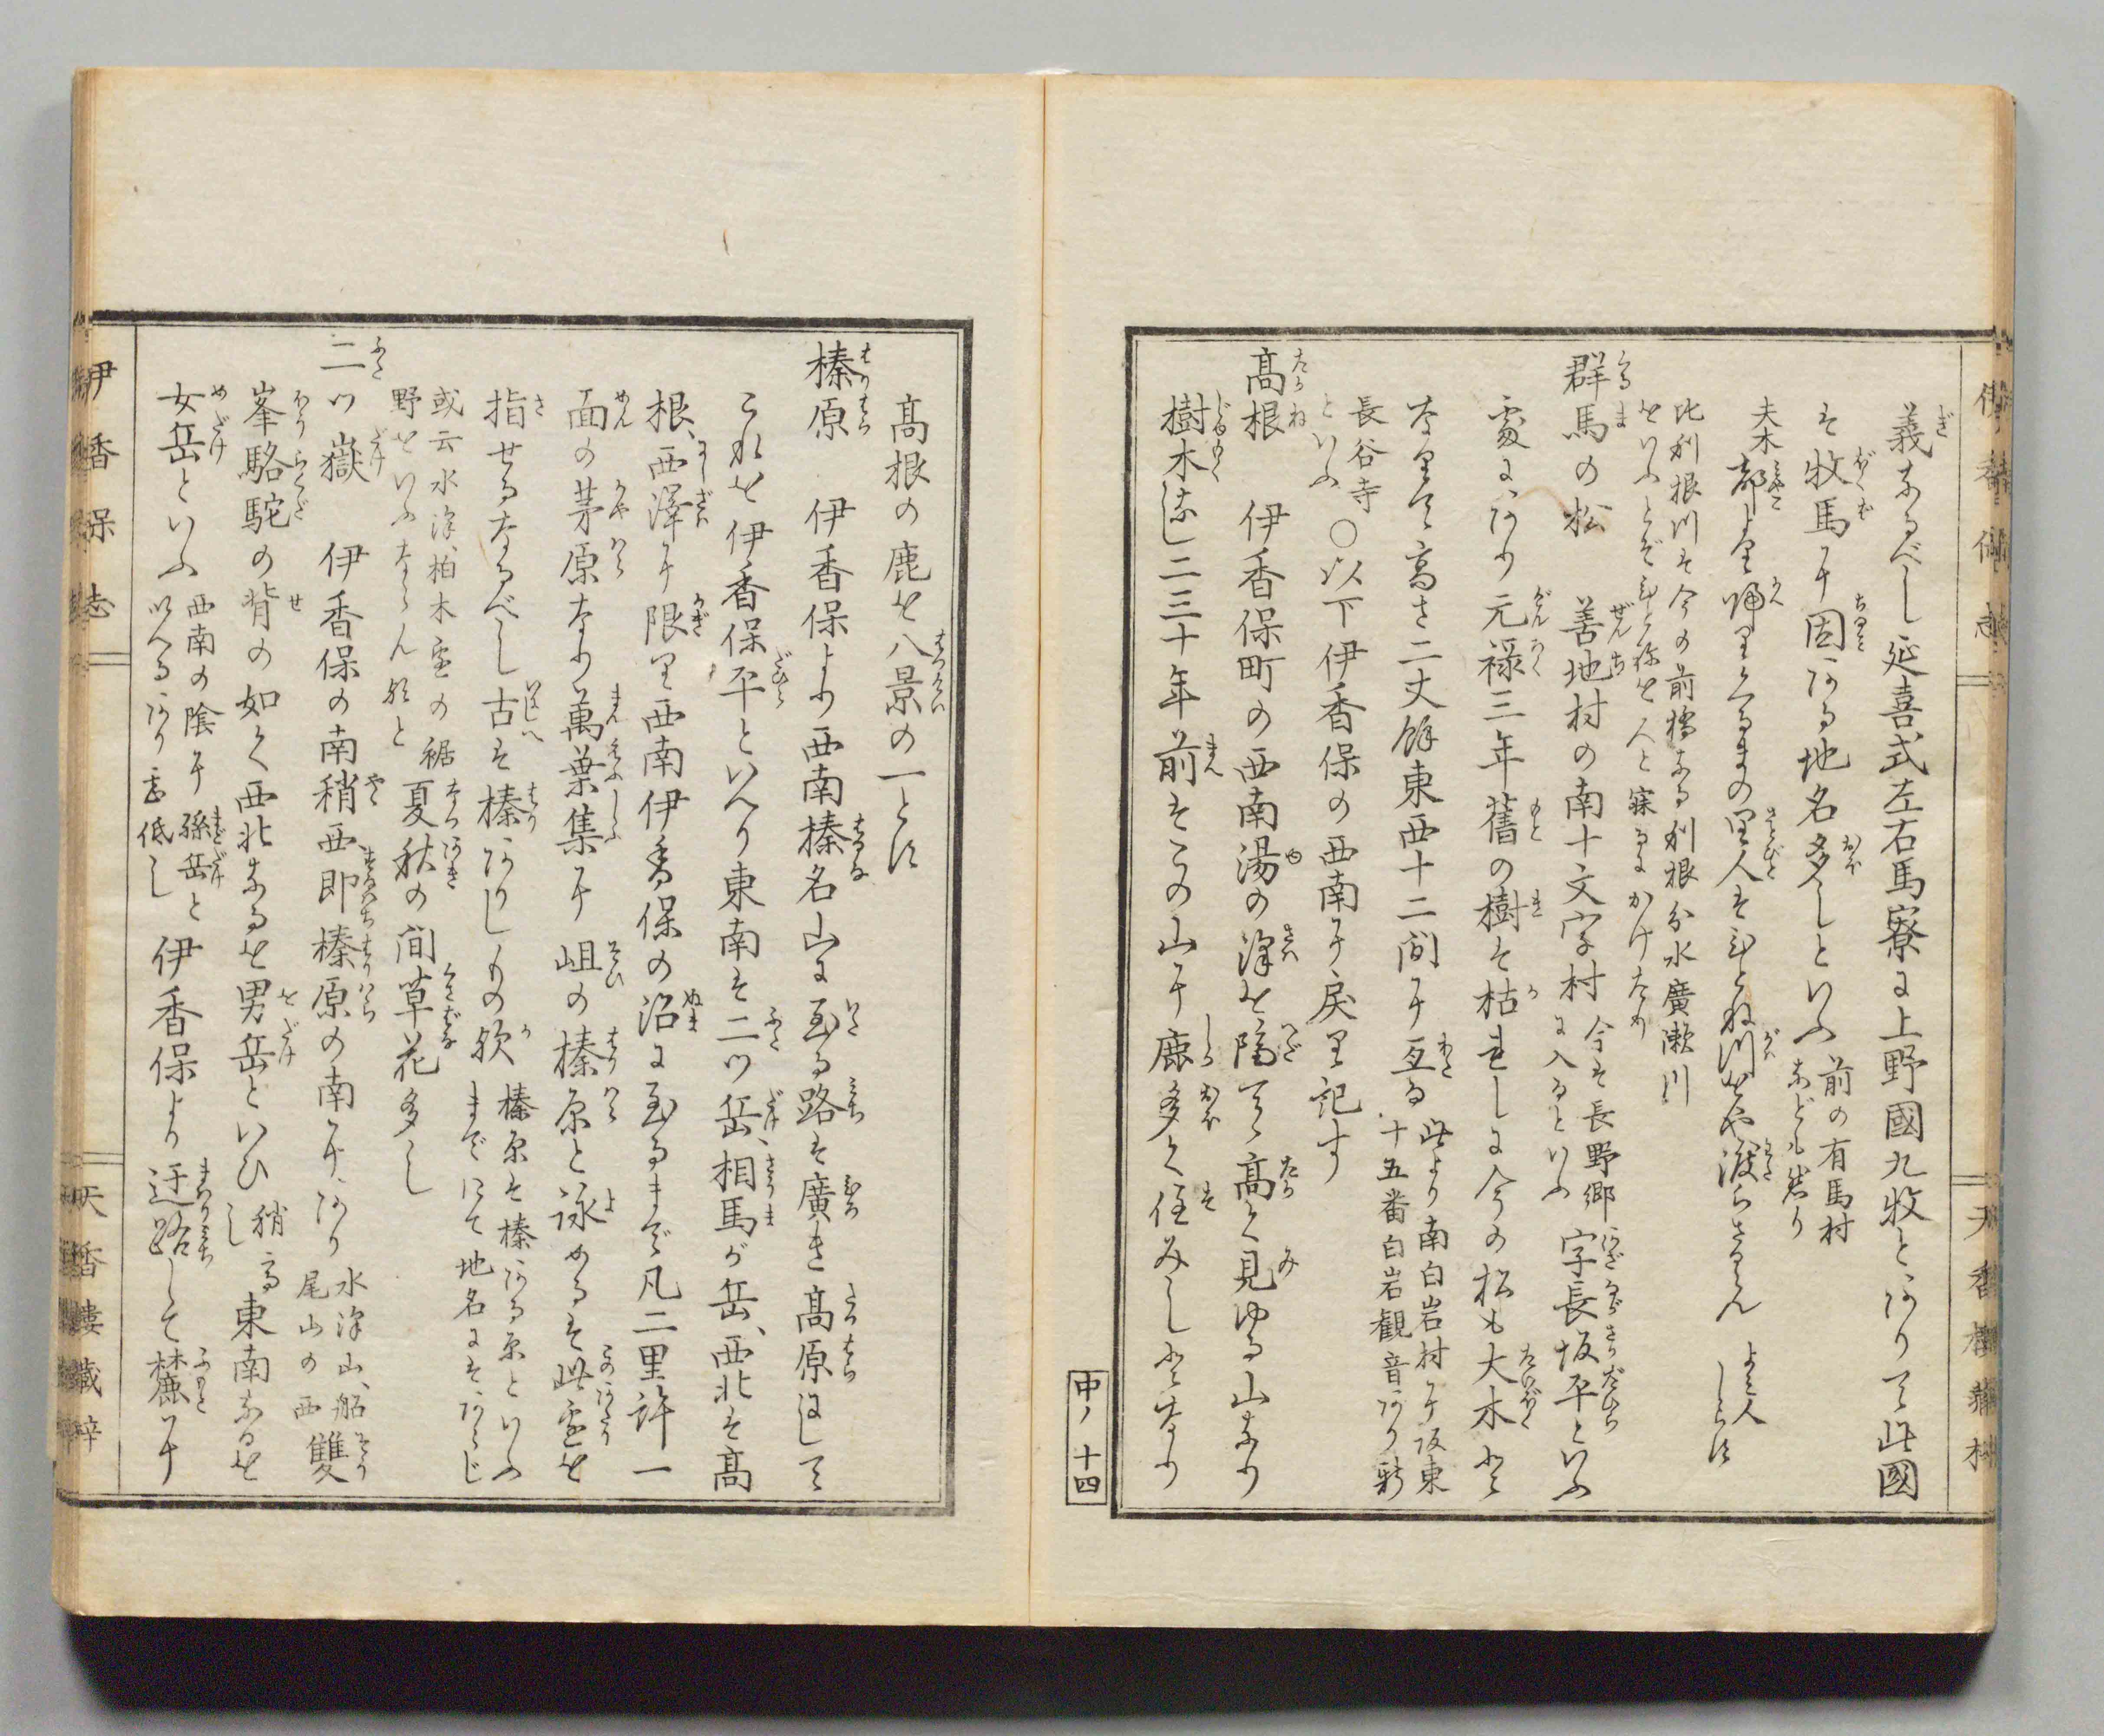 義なるべし延喜式左右馬寮に上野國九牧とありて此國
は牧馬に因ある地名多しといふ 前の有馬村なども然り
夫木 都より帰りくるまの里人はひとね川をや渡らさるらん よミ人しらす
比利根川は今の前橋なる利根分水廣瀬川
をいふとぞひとねを人と寐るにかけたり
群馬の松 善地村の南十文字村 今は長野郷に入るといふ 字長坂平といふ
處にあり元禄三年舊の樹は枯れしに今の松も大木と
なりて高さ二丈餘東西十二間に亙る 此より南白岩村に坂東十五番白岩観音あり新
長谷寺といふ ○以下伊香保の西南に戻り記す
髙根 伊香保町の西南湯の澤を隔て髙く見ゆる山なり
樹木なし二三十年前はこの山に鹿多く住みしとなり
中ノ十四
髙根の鹿を八景の一とす
榛原 伊香保より西南榛名山に至る路は廣き髙原にして
これを伊香保平といへり東南は二ツ岳、相馬が岳、西北は髙
根、西澤に限り西南伊香保の沼に至るまで凡二里許一
面の茅原なり萬葉集に岨の榛原と詠めるは此處を
指せるなるべし古は榛ありしもの歟 榛原は榛ある原といふまでにて地名にはあらじ
或云水澤、柏木邊の裾野をいふならん歟と 夏秋の間草花多し
二ツ嶽 伊香保の南稍西、即榛原の南にあり 水澤山、船尾山の西 雙
峯駱駝の背の如く西北なるを男岳といひ 稍高し 東南なるを
女岳といふ 西南の陰に孫岳といへるあり甚低し 伊香保より迂路して麓に
伊香保志
天香樓藏梓